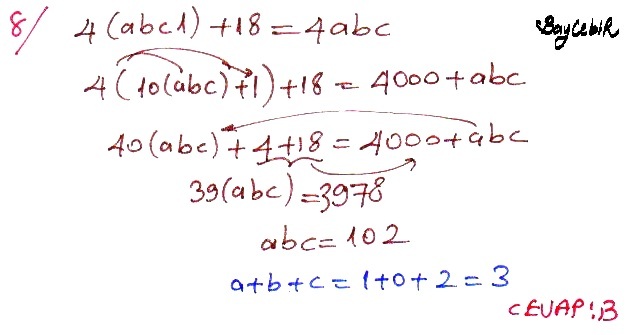 8/ 4(abc1)+18=4abc
BayCebiR
4(10(abc)+1)+18=4000+abc
40(abc)+4+18=4000+abc
39(abc)=3978
abc=102
a+b+c=1+0+2=3
CEVAP:B